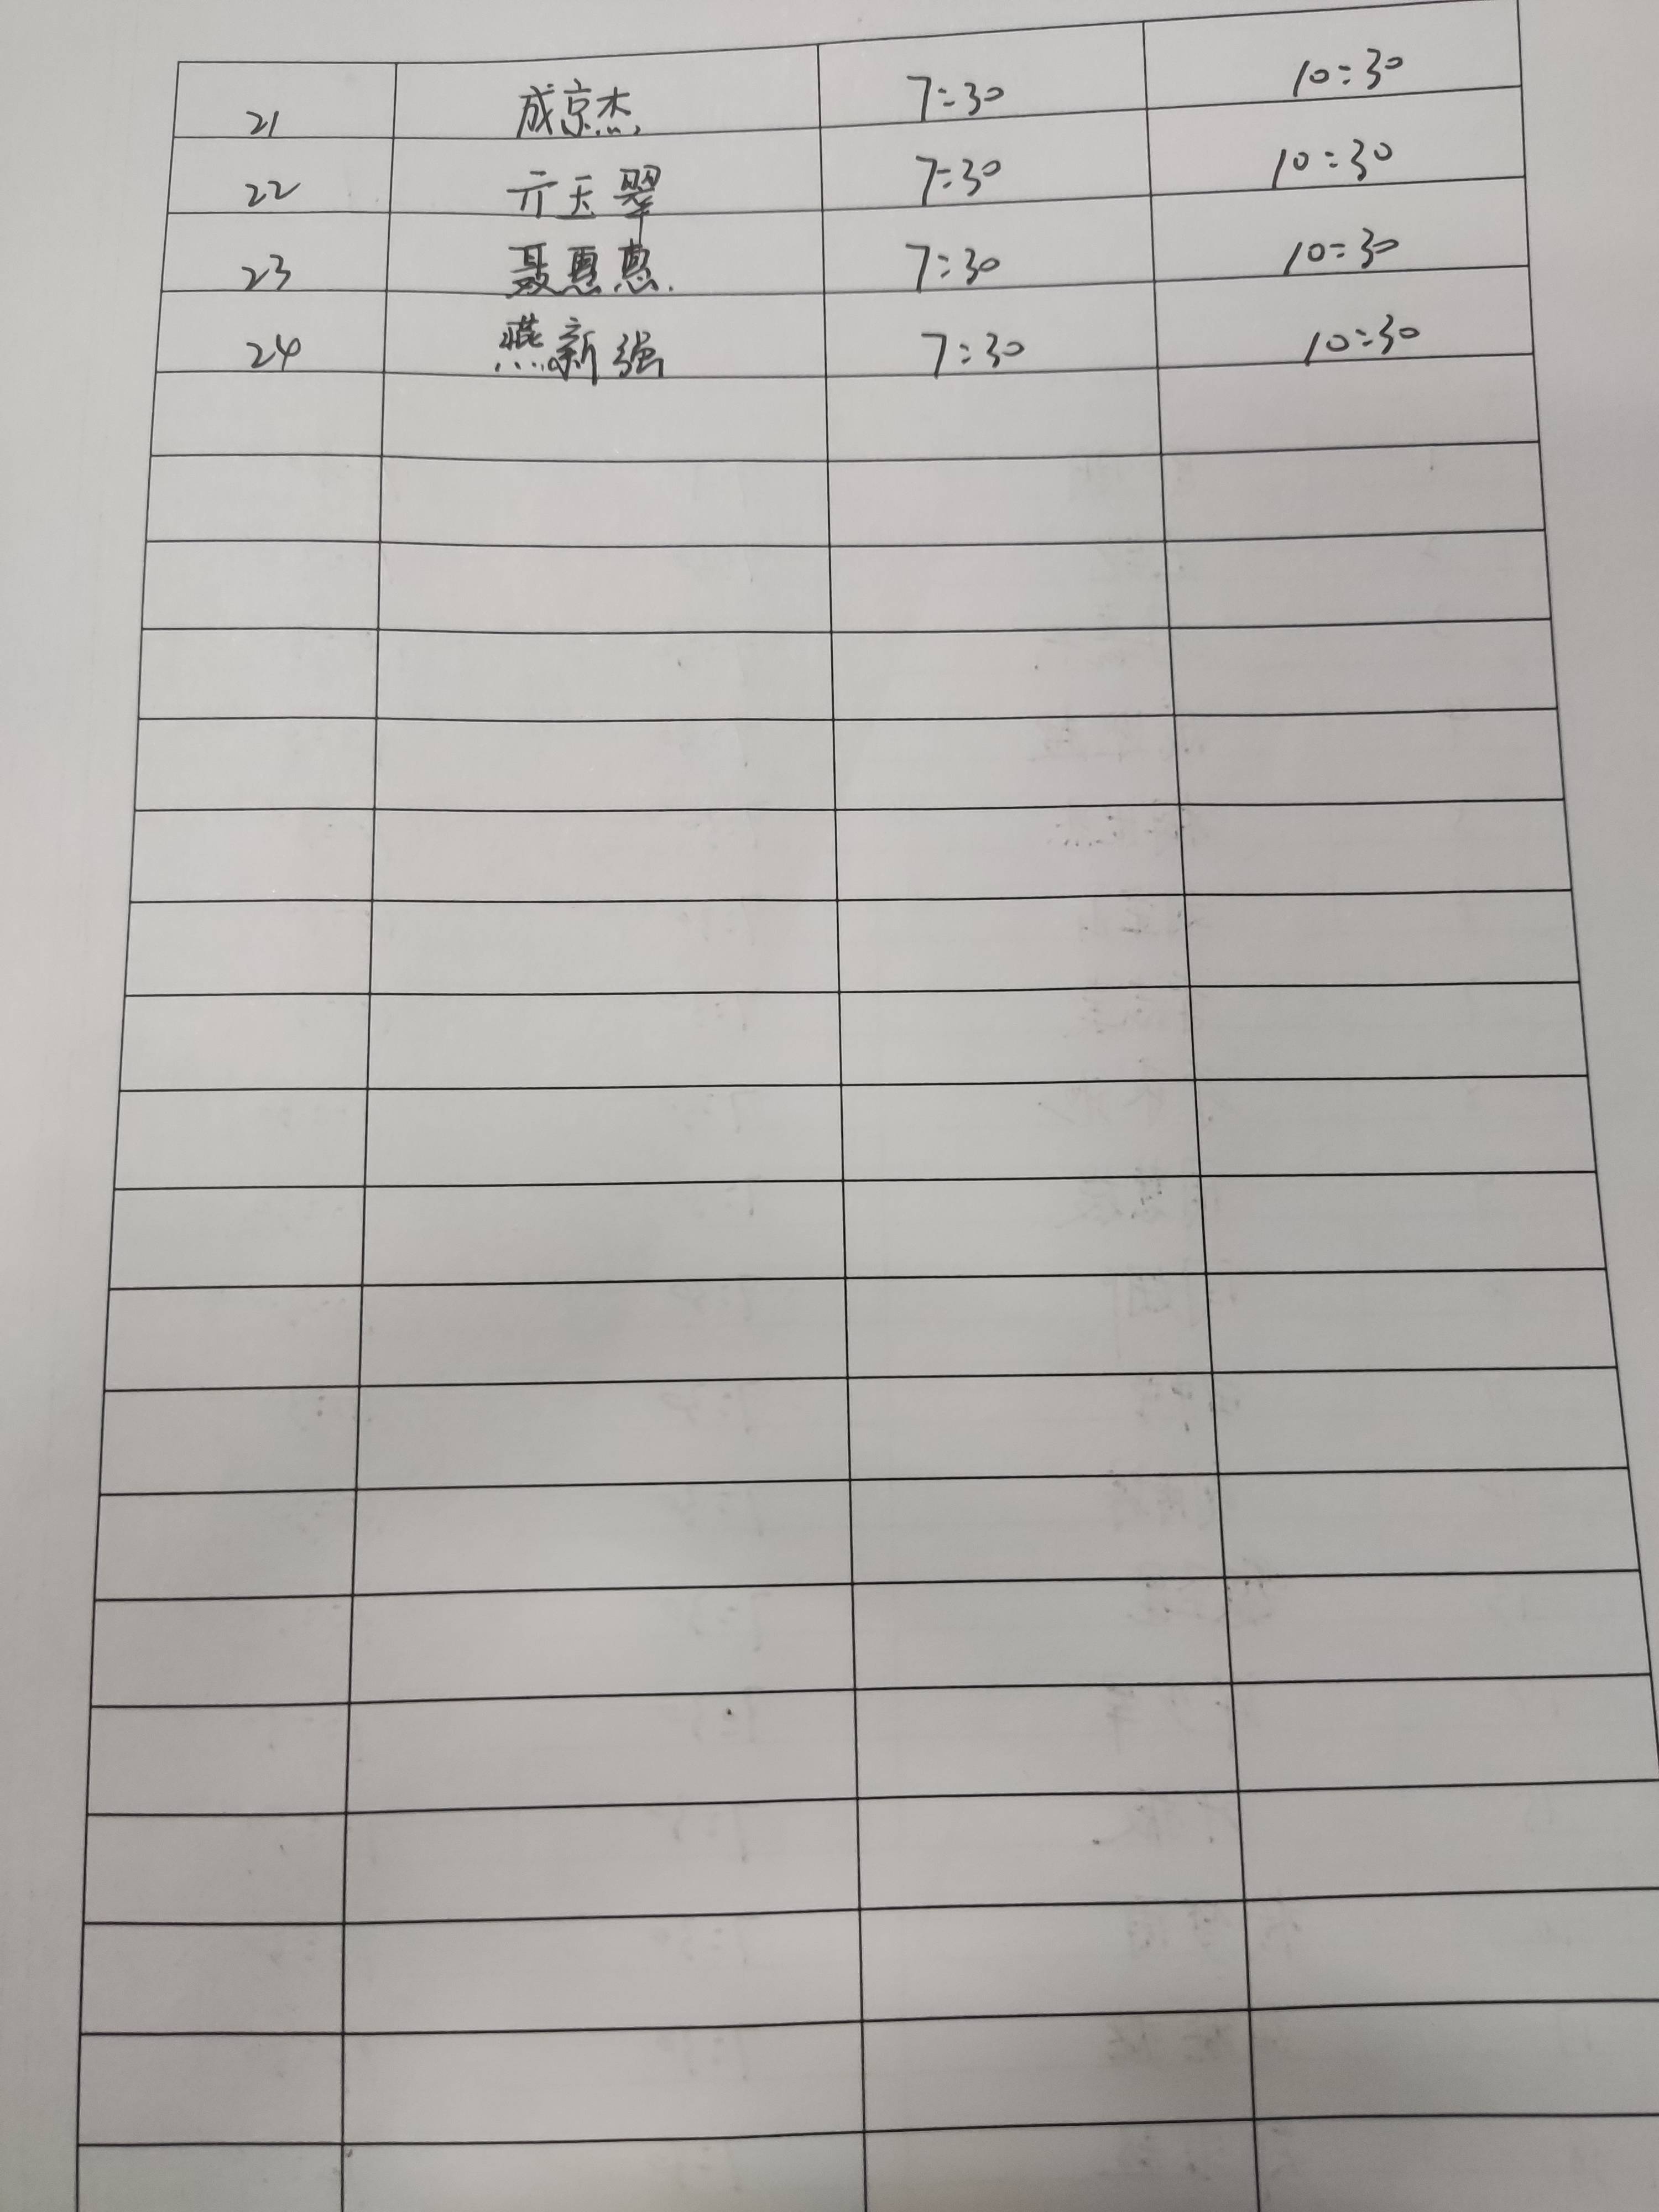 21 成京杰 7:30 10:30
22 亓玉翠 7:30 10:30
23 聂惠惠 7:30 10:30
24 燕新强 7:30 10:30